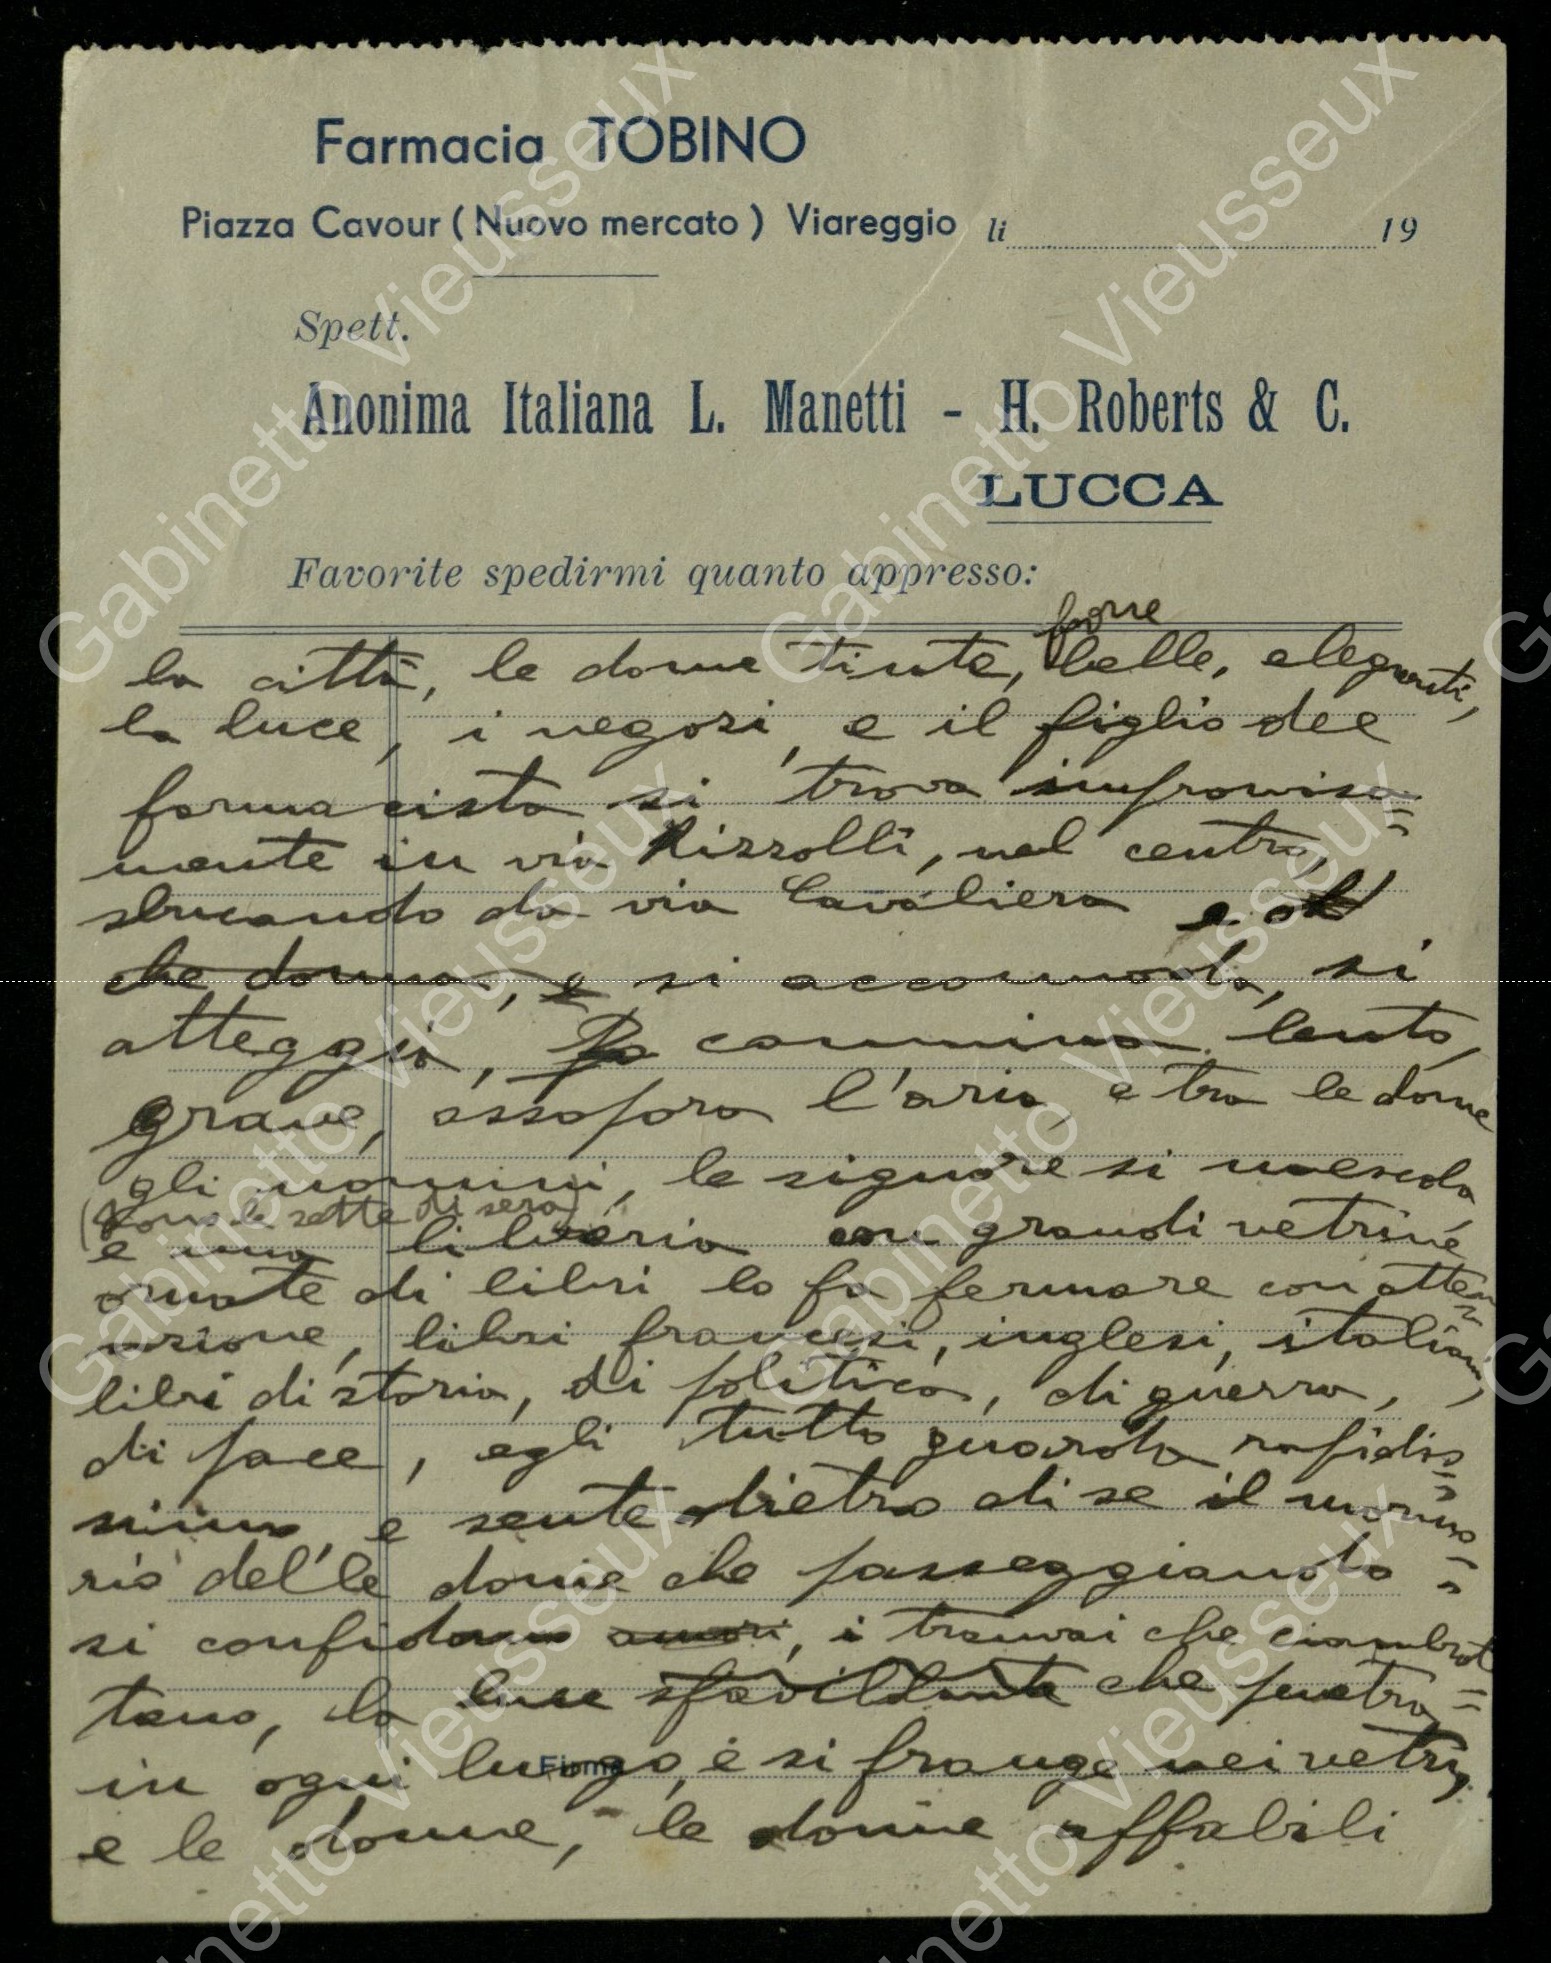 Farmacia TOBINO
Piazza Cavour ( Nuovo mercato ) Viareggio li 19
Spett.
Anonima Italiana L. Manetti - H. Roberts & C.
LUCCA
Favorite spedirmi quanto appresso:
forse
la città, le donne tinte, belle, eleganti,
la luce, i negozi, e il figlio del
farmacista si trova improvisa=
mente in via Rizzolli, nel centro,
sbucando da via Cavaliera e
che donna, e si accomoda, si
atteggia, cammina lento,
grave, assapora l'aria, e tra le donne
gli uomini, le signore si mescola
(sono le sette di sera)
e una libreria con grandi vetrine
ornate di libri lo fa fermare con atten=
zione, libri francesi, inglesi, italiani,
libri di storia, di politica, di guerra,
di pace, egli tutto guarda rapidis=
simo, e sente dietro di se il mormo=
rio del'le donne che passeggiando
si confidano amori, i tranvai che
tano, la luce sfavillante che penetra
in ogni luogo, e si frange nei vetri,
Firma
e le donne, le donne affabili
Gabinetto Vieusseux